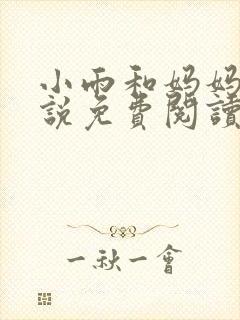 小雨和妈妈
說免費閱讀
一秋一會